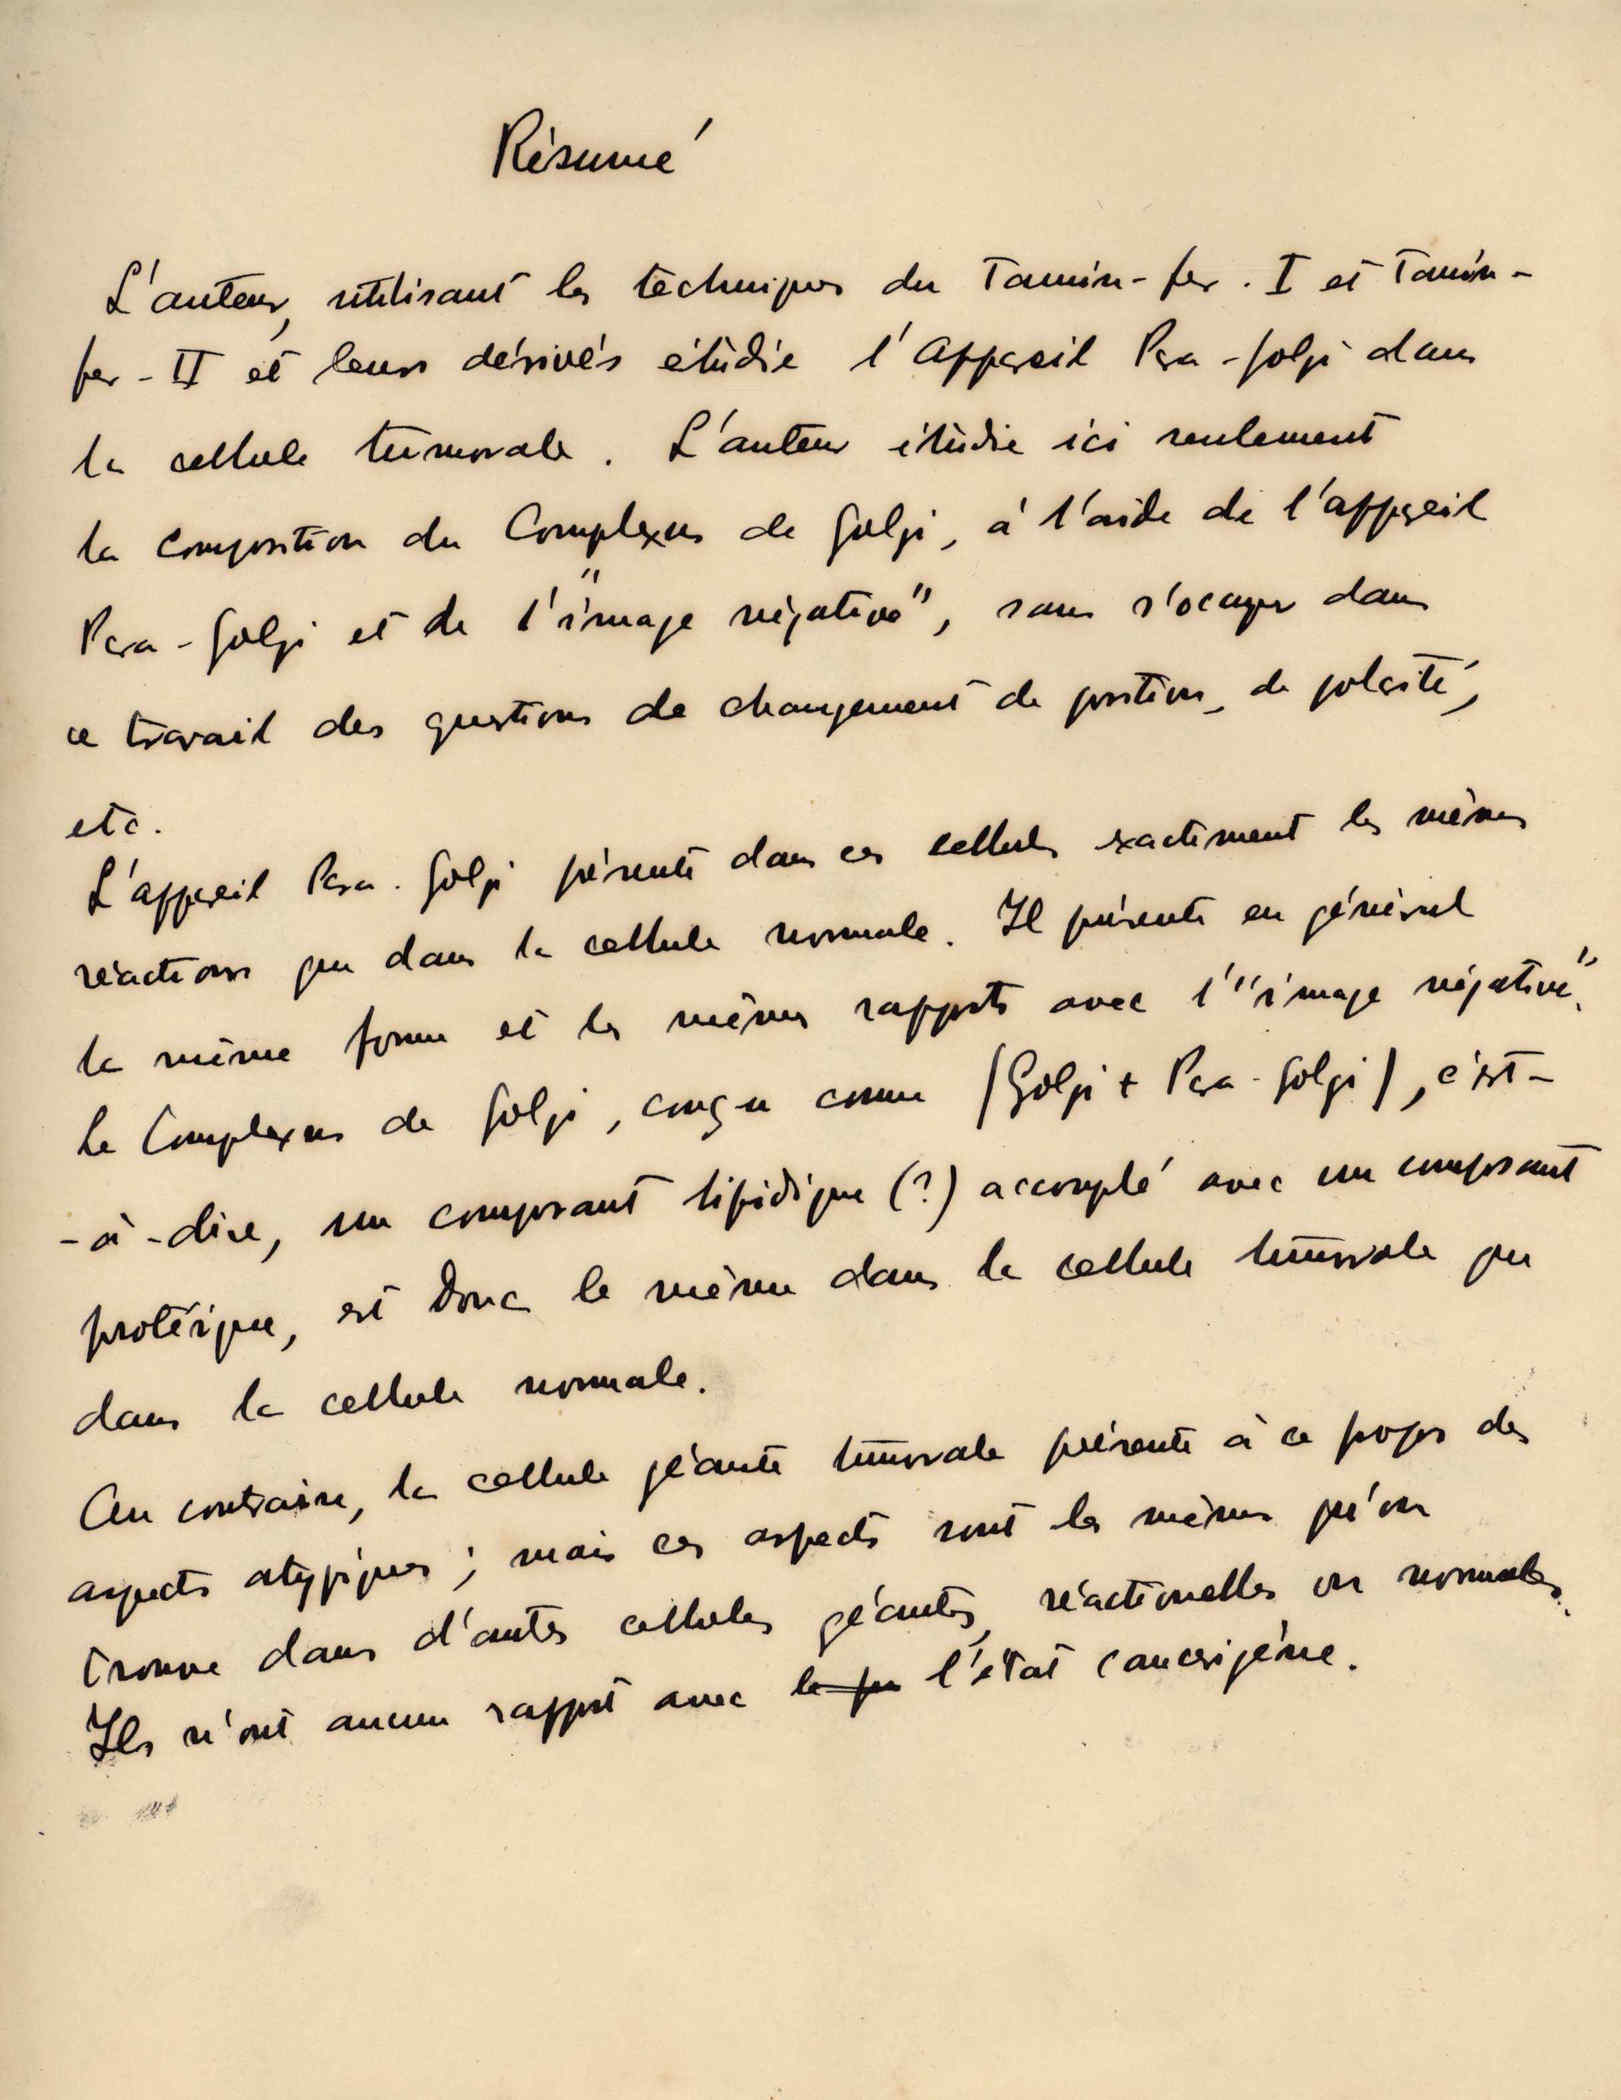 Résumé
L'auteur, utilisant les techniques du Tannin-fer. I et Tannin-
fer-II et leurs dérivés étudie l'Appareil Para-Golgi dans
la cellule tumorale. L'auteur étudie ici seulement
la composition du Complexus de Golgi, à l'aide de l'appareil
Para-Golgi et de l'"image négative", sans s'occuper dans
ce travail des questions de changement de position, de polarité,
etc.
L'appareil Para-Golgi présente dans ces cellules exactement les mêmes
réactions que dans la cellule normale. Il présente en général
la même forme et les mêmes rapports avec l'"image négative".
Le Complexus de Golgi, conçu comme (Golgi + Para-Golgi), c'est-
-à-dire, un composant lipidique (?) accouplé avec un composant
protéique, est donc le même dans la cellule tumorale que
dans la cellule normale.
Au contraire, la cellule géante tumorale présente à ce propos des
aspects atypiques; mais ces aspects sont les mêmes qu'on
trouve dans d'autres cellules géantes, réactionelles ou normales.
Ils n'ont aucun rapport avec l'état cancerigène.